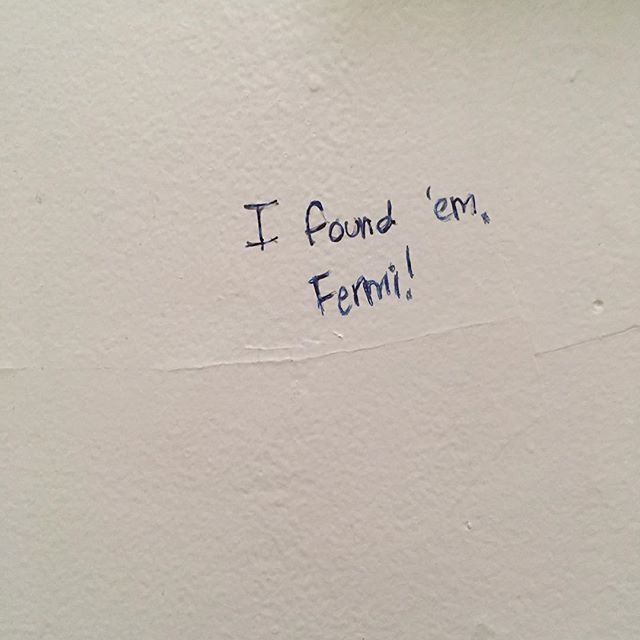 I found 'em.
Fermi!